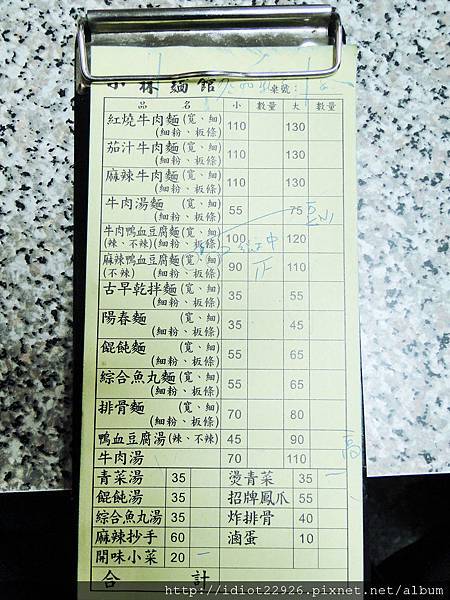 小林麵館 桌號：
品名 小 數量 大 數量
紅燒牛肉麵(寬、細) 110 130
(細粉、板條)
茄汁牛肉麵(寬、細) 110 130
(細粉、板條)
麻辣牛肉麵(寬、細) 110 130
(細粉、板條)
牛肉湯麵 (寬、細) 55 75
(細粉、板條)
牛肉鴨血豆腐麵(寬、細) 100 120
(辣、不辣)(細粉、板條)
麻辣鴨血豆腐麵(寬、細) 90 110
(不辣) (細粉、板條)
古早乾拌麵(寬、細) 35 55
(細粉、板條)
陽春麵 (寬、細) 35 45
(細粉、板條)
餛飩麵 (寬、細) 55 65
(細粉、板條)
綜合魚丸麵(寬、細) 55 65
(細粉、板條)
排骨麵 (寬、細) 70 80
(細粉、板條)
鴨血豆腐湯(辣、不辣) 45 90
牛肉湯 70 110
青菜湯 35 燙青菜 35
餛飩湯 35 招牌鳳爪 55
綜合魚丸湯 35 炸排骨 40
麻辣抄手 60 滷蛋 10
開味小菜 20
合計
http://idiot22926.pixnet.net/album